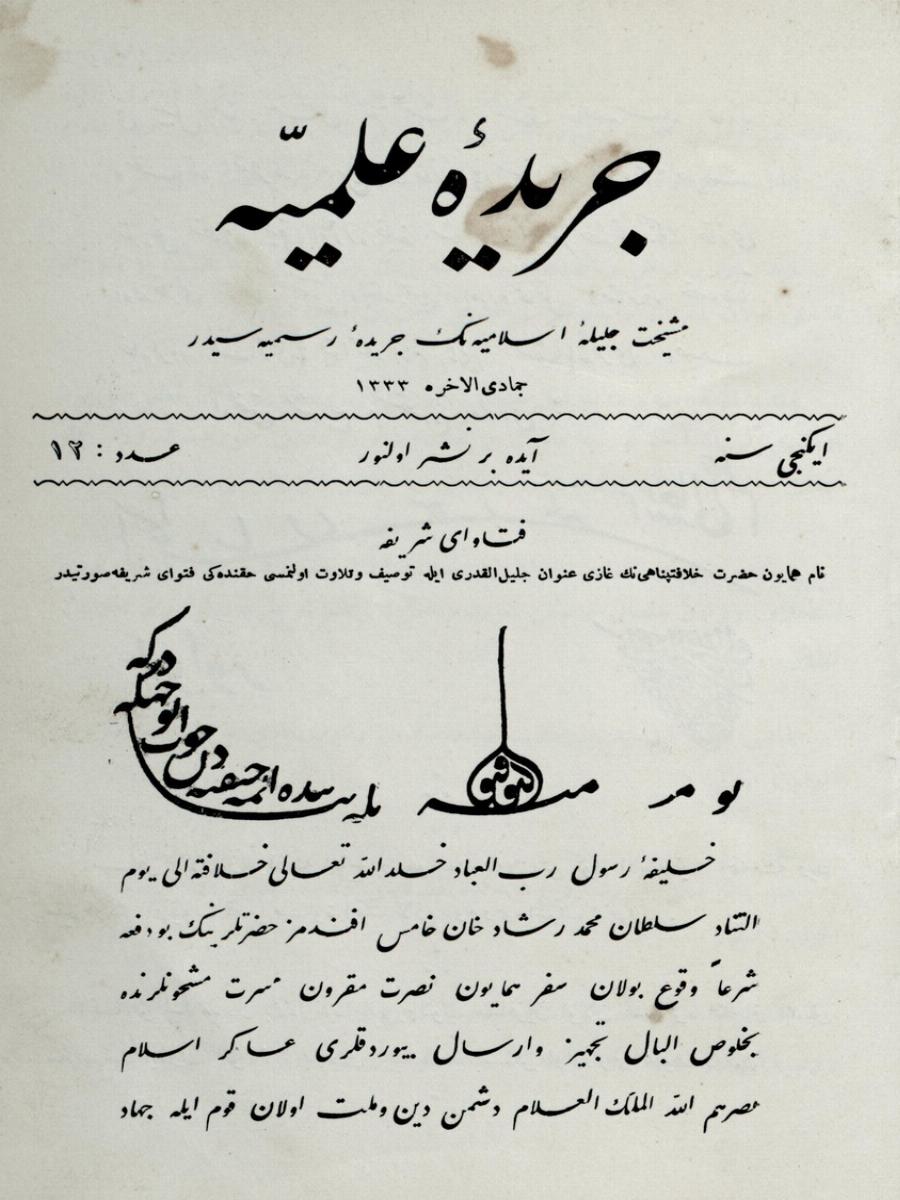 جريدۀ علميّه
مشيخت جليلۀ اسلاميه نك جريدۀ رسميه سيدر
جمادى الاخره ١٣٣٣
ايكنجى سنه
آيده بر نشر اولنور
عدد : ١٢
فتاواى شريفه
نام همايون حضرت خلافتپناهى نك غازى عنوان جليل القدرى ايله توصيف وتلاوت اولنمسى حقنده كى فتواى شريفه صورتيدر
التوفيق
بو مسئله ده ائمه حنفيه دن جواب نه وجهله دركه
خليفۀ رسول رب العباد خلد الله تعالى خلافته الى يوم
التناد سلطان محمد رشاد خان خامس افندمز حضرتلرينك بو دفعه
شرعاً وقوع بولان سفر همايون نصرت مقرون مسرت مشحونلرنده
بخلوص البال تجهيز وارسال بيوردقلرى عساكر اسلام
نصرهم الله الملك العلام دشمن دين وملت اولان قوم ايله جهاد